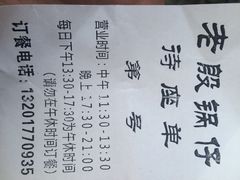 老殷锅仔
待座单
第 号
营业时间:中午11:30-13:30
晚上17:30-21:00
每日下午13:30-17:30为午休时间
(请勿在午休时间订餐)
订餐电话:13201770935